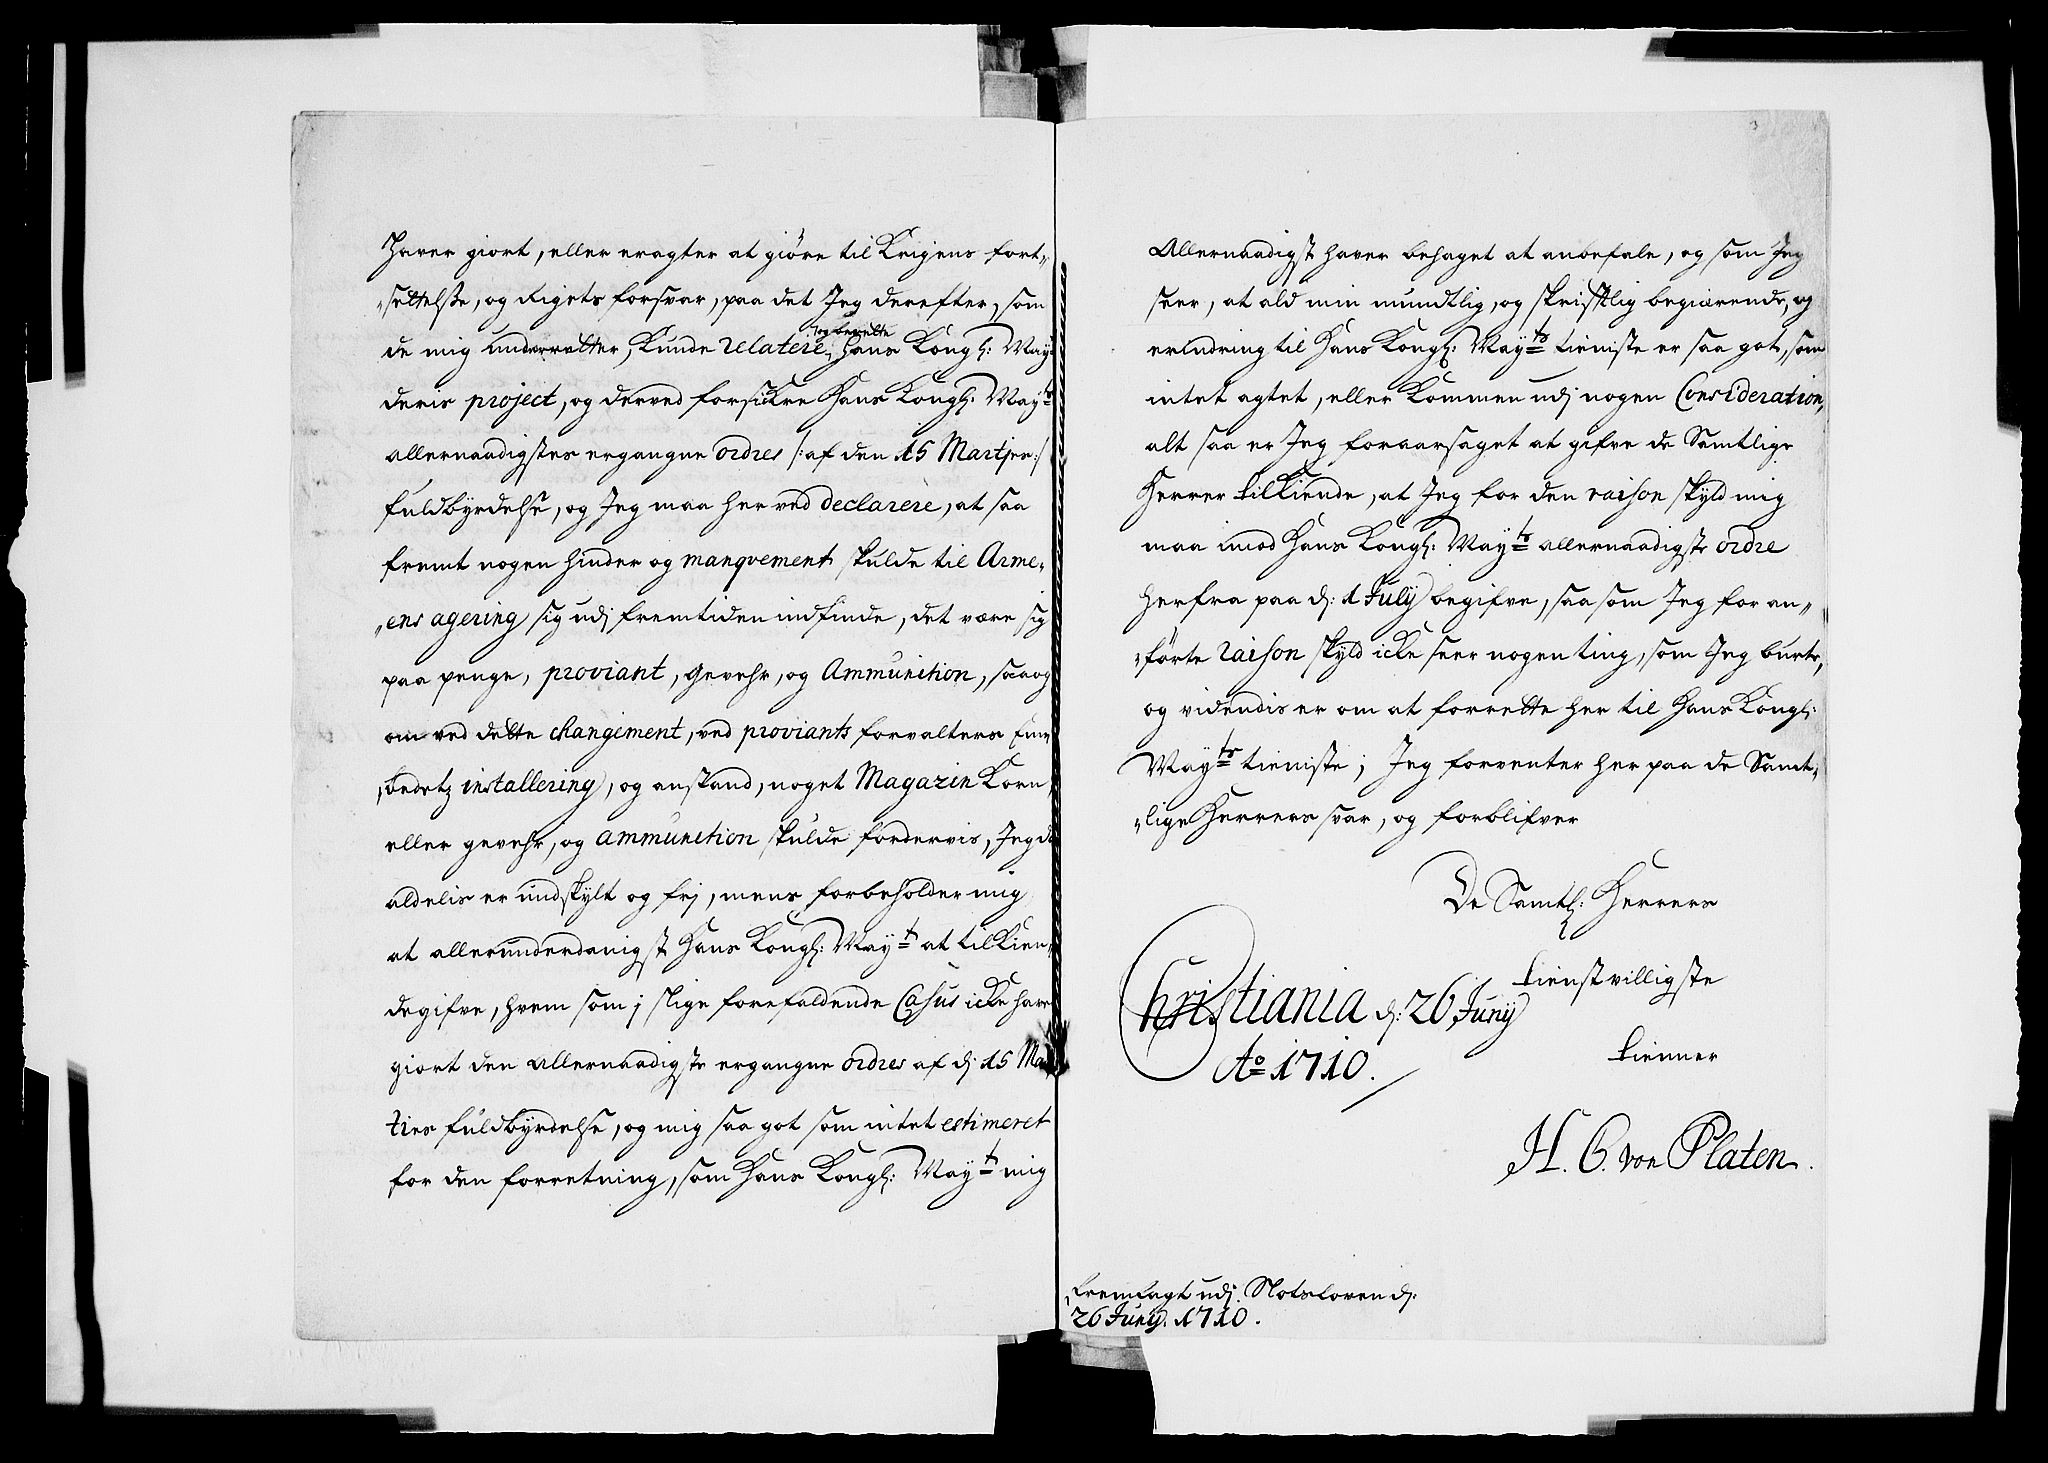 hafver giort, eller eragter at giöre til Krigens fort-
settelse, og Rigets forsvar, paa det Jeg derefter, som
de mig underretter, Kunde relatere og berette Hans Kongl: May
deris project, og derved forsickre Hans Kongl: Mayts
allernaadigstes ergangne ordres /: af den 15 Martjes :/
fuldbyrdelse, og Jeg maa her ved declarere, at saa
fremt nogen hinder og manqvement skulde til Arme-
ens agering sig udj fremtiden indfinde, det være sig
paa penge, proviant, gevehr, og Ammunition, saa og
om ved dette changement, ved proviants forvalters Em-
bedetz installering, og anstand, noget Magazin Korn,
eller gevehr, og ammunition skulde fordervis, Jeg da
aldelis er undskylt og frj, mens forbeholder mig
at allerunderdanigst Hans Kongl: Mayt at tilkien-
degifve, hvem som j slige forefaldende Casus icke hafve
giort den allernaadigste ergangne ordres af dj 15 Mar
ties fuldbyrdelse, og mig saa got som intet estimeret
for den forretning, som Hans Kongl: Mayt mig
3
Allernaadigst hafver behaget at anbefale, og som Jeg
seer, at ald min mundtlig, og skriftlig begiærende, og
erindring til Hans Kongl: Mayts tieniste er saa got, som
intet agtet, eller Kommen udj nogen Consideration,
alt saa er Jeg foraarsaget at gifve de Samtlige
Herrer tilkiende, at Jeg for den raison skyld mig
maa imod Hans Kongl: Mayts allernaadigste ordre
herfra paa d: 1 July begifve, saa som Jeg for an-
förte raison skyld icke seer nogen ting, som Jeg burte,
og videndis er om at forrette her til Hans Kongl:
Mayts tieniste; Jeg forventer her paa de Samt-
lige Herrers svar, og forblifver
De Samtl: Herrers
tienstvilligste
Christiania d: 26 Junij
tienner
Ao 1710.
H. C. von Platen.
fremlagt udj Slotsloven d:
26 Junij. 1710.